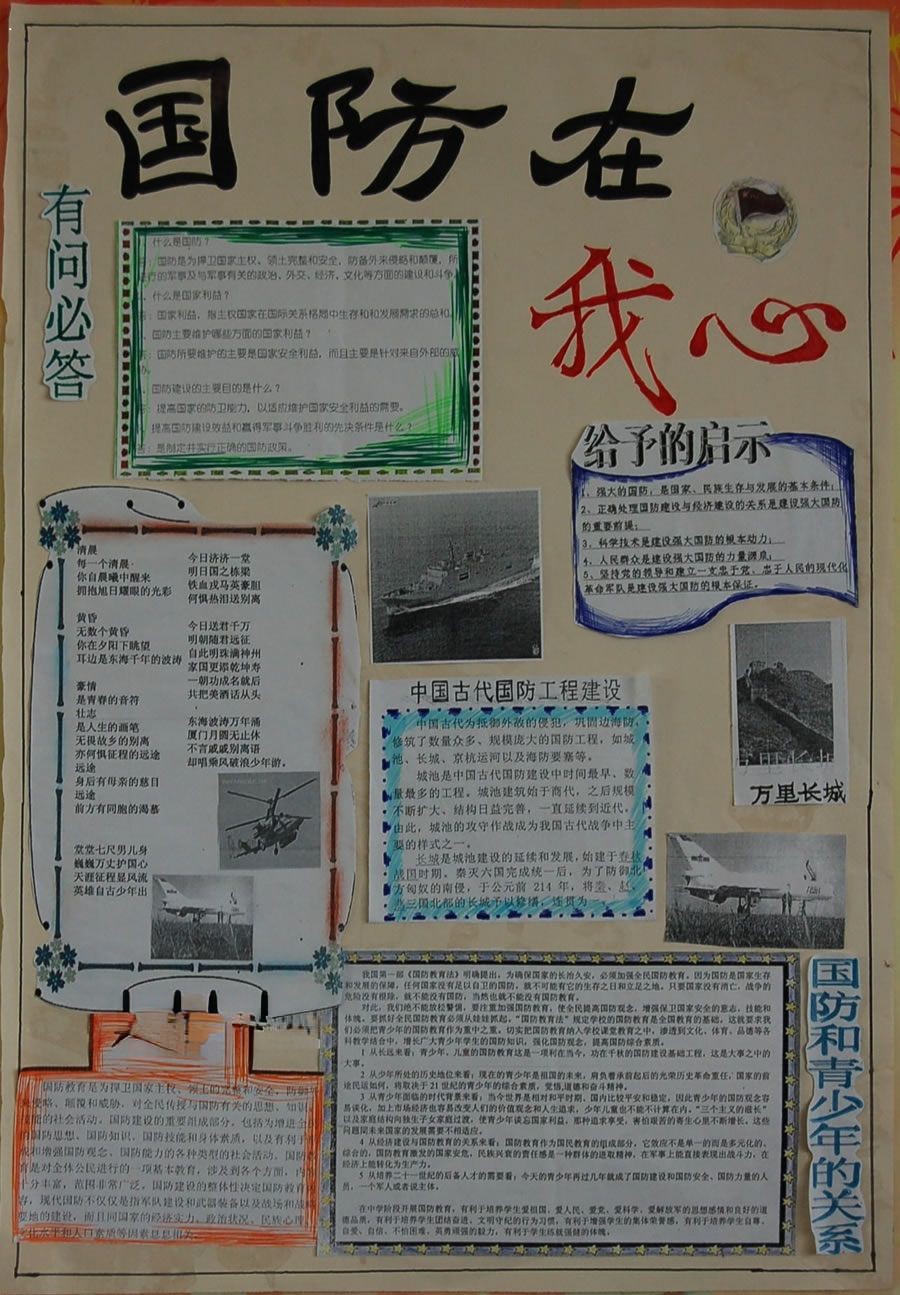 国防在
我心
有问必答
什么是国防？
国防是为捍卫国家主权、领土完整和安全，防备外来侵略和颠覆，所
进行的军事及与军事有关的政治、外交、经济、文化等方面的建设和斗争
什么是国家利益？
国家利益，是主权国家在国际关系格局中生存和和发展需求的总和。
国防主要维护哪些方面的国家利益？
国防所要维护的主要是国家安全利益，而且主要是针对来自外部的威
胁。
国防建设的主要目的是什么？
提高国家的防卫能力，以适应维护国家安全利益的需要。
提高国防建设效益和赢得军事斗争胜利的先决条件是什么？
是制定并实行正确的国防政策。
给予的启示
1、强大的国防；是国家、民族生存与发展的基本条件；
2、正确处理国防建设与经济建设的关系是建设强大国防
的重要前提；
3、科学技术是建设强大国防的根本动力；
4、人民群众是建设强大国防的力量源泉；
5、坚持党的领导和建立一支忠于党、忠于人民的现代化
革命军队是建设强大国防的根本保证。
清晨
每一个清晨
你自晨曦中醒来
拥抱旭日耀眼的光彩
黄昏
无数个黄昏
你在夕阳下眺望
耳边是东海千年的波涛
豪情
是青春的音符
壮志
是人生的画笔
无畏故乡的别离
亦何惧征程的远途
远途
身后有母亲的慈目
远途
前方有同胞的渴慕
堂堂七尺男儿身
巍巍万丈护国心
天涯征程显风流
英雄自古少年出
今日济济一堂
明日国之栋梁
铁血戎马英豪胆
何惧热泪送别离
今日送君千万
明朝随君远征
自此明珠满神州
家国更添乾坤寿
一朝功成名就后
共把美酒话从头
东海波涛万年涌
厦门月圆无止休
不言戚戚别离语
却唱乘风破浪少年游。
中国古代国防工程建设
中国古代为抵御外敌的侵犯，巩固边海防，
修筑了数量众多、规模庞大的国防工程，如城
池、长城、京杭运河以及海防要塞等。
城池是中国古代国防建设中时间最早、数
量最多的工程。城池建筑始于商代，之后规模
不断扩大、结构日益完善，一直延续到近代。
由此，城池的攻守作战成为我国古代战争中主
要的样式之一。
长城是城池建设的延续和发展，始建于春秋
战国时期。秦灭六国完成统一后，为了防御北
方匈奴的南侵，于公元前 214 年，将秦、赵、
燕三国北部的长城予以修缮，连贯为一。
万里长城
国防和青少年的关系
我国第一部《国防教育法》明确提出，为确保国家的长治久安，必须加强全民国防教育。因为国防是国家生存
和发展的保障，任何国家没有足以自卫的国防，就不可能有它的生存之日和立足之地。只要国家没有消亡，战争的
危险没有根除，就不能没有国防，当然也就不能没有国防教育。
对此，我们绝不能放松警惕，要注重加强国防教育，使全民提高国防观念，增强保卫国家安全的意志，技能和
体魄。要抓好全民国防教育必须从娃娃抓起。“国防教育法”规定学校的国防教育是全国教育的基础，这就要求我
们必须把青少年的国防教育作为重中之重。切实把国防教育纳入学校课堂教育之中，渗透到文化、体育、品德等各
科教学结合中，增长广大青少年学生的国防知识，强化国防观念，提高国防综合素质。
1 从长远来看：青少年、儿童的国防教育这是一项利在当今，功在千秋的国防建设基础工程，这是大事之中的
大事。
2 从少年所处的历史地位来看：现在的青少年是祖国的未来，肩负着承前起后的光荣历史革命重任，国家的前
途民运如何，将取决于 21 世纪的青少年的综合素质，觉悟，道德和奋斗精神。
3 从青少年面临的时代背景来看：当今世界是相对和平时期、国内比较平安和稳定，因此青少年的国防观念容
易谈化，加上市场经济也容易改变人们的价值观念和人生追求，少年儿童也不能不计算在内。“三个主义的滋长”
以及家庭结构向独生子女家庭过渡，使青少年谈忘国家利益，那种追求享受、害怕艰苦的寄生心里不断增长，这些
问题同未来国家的发展需要不相适应。
4 从经济建设与国防教育的关系来看：国防教育作为国民教育的组成部分，它效应不是单一的而是多元化的、
综合的，国防教育激发的国家安危，民族兴衰的责任感是一种群体的进取精神，在军事上能直接表现出战斗力，在
经济上能转化为生产力。
5 从培养二十一世纪的后备人才的需要看：今天的青少年再过几年就成了国防建设和国防安全、国防力量的人
员，一个军人或者说主体。
在中学阶段开展国防教育，有利于培养学生爱祖国、爱人民、爱党、爱科学、爱解放军的思想感情和良好的道
德品质，有利于培养学生团结奋进、文明守纪的行为习惯，有利于增强学生的集体荣誉感，有利于培养学生自尊、
自爱、自信、不怕困难、英勇顽强的毅力，有利于学生练就强健的体魄。
国防教育是为捍卫国家主权、领土的完整和安全，防御
侵略、颠覆和威胁，对全民传授与国防有关的思想、知识、
技能的社会活动。国防建设的重要组成部分，包括为增进全民
的国防思想、国防知识、国防技能和身体素质，以及有利于
和增强国防观念、国防能力的各种类型的社会活动。国防教
育是对全体公民进行的一项基本教育，涉及到各个方面，内容
十分丰富，范围非常广泛，国防建设的整体性决定国防教育
容，现代国防不仅仅是指军队建设和武器装备以及战场和战略
要地的建设，而且同国家的经济实力、政治状况、民族心理、
文化水平和人口素质等因素息息相关。